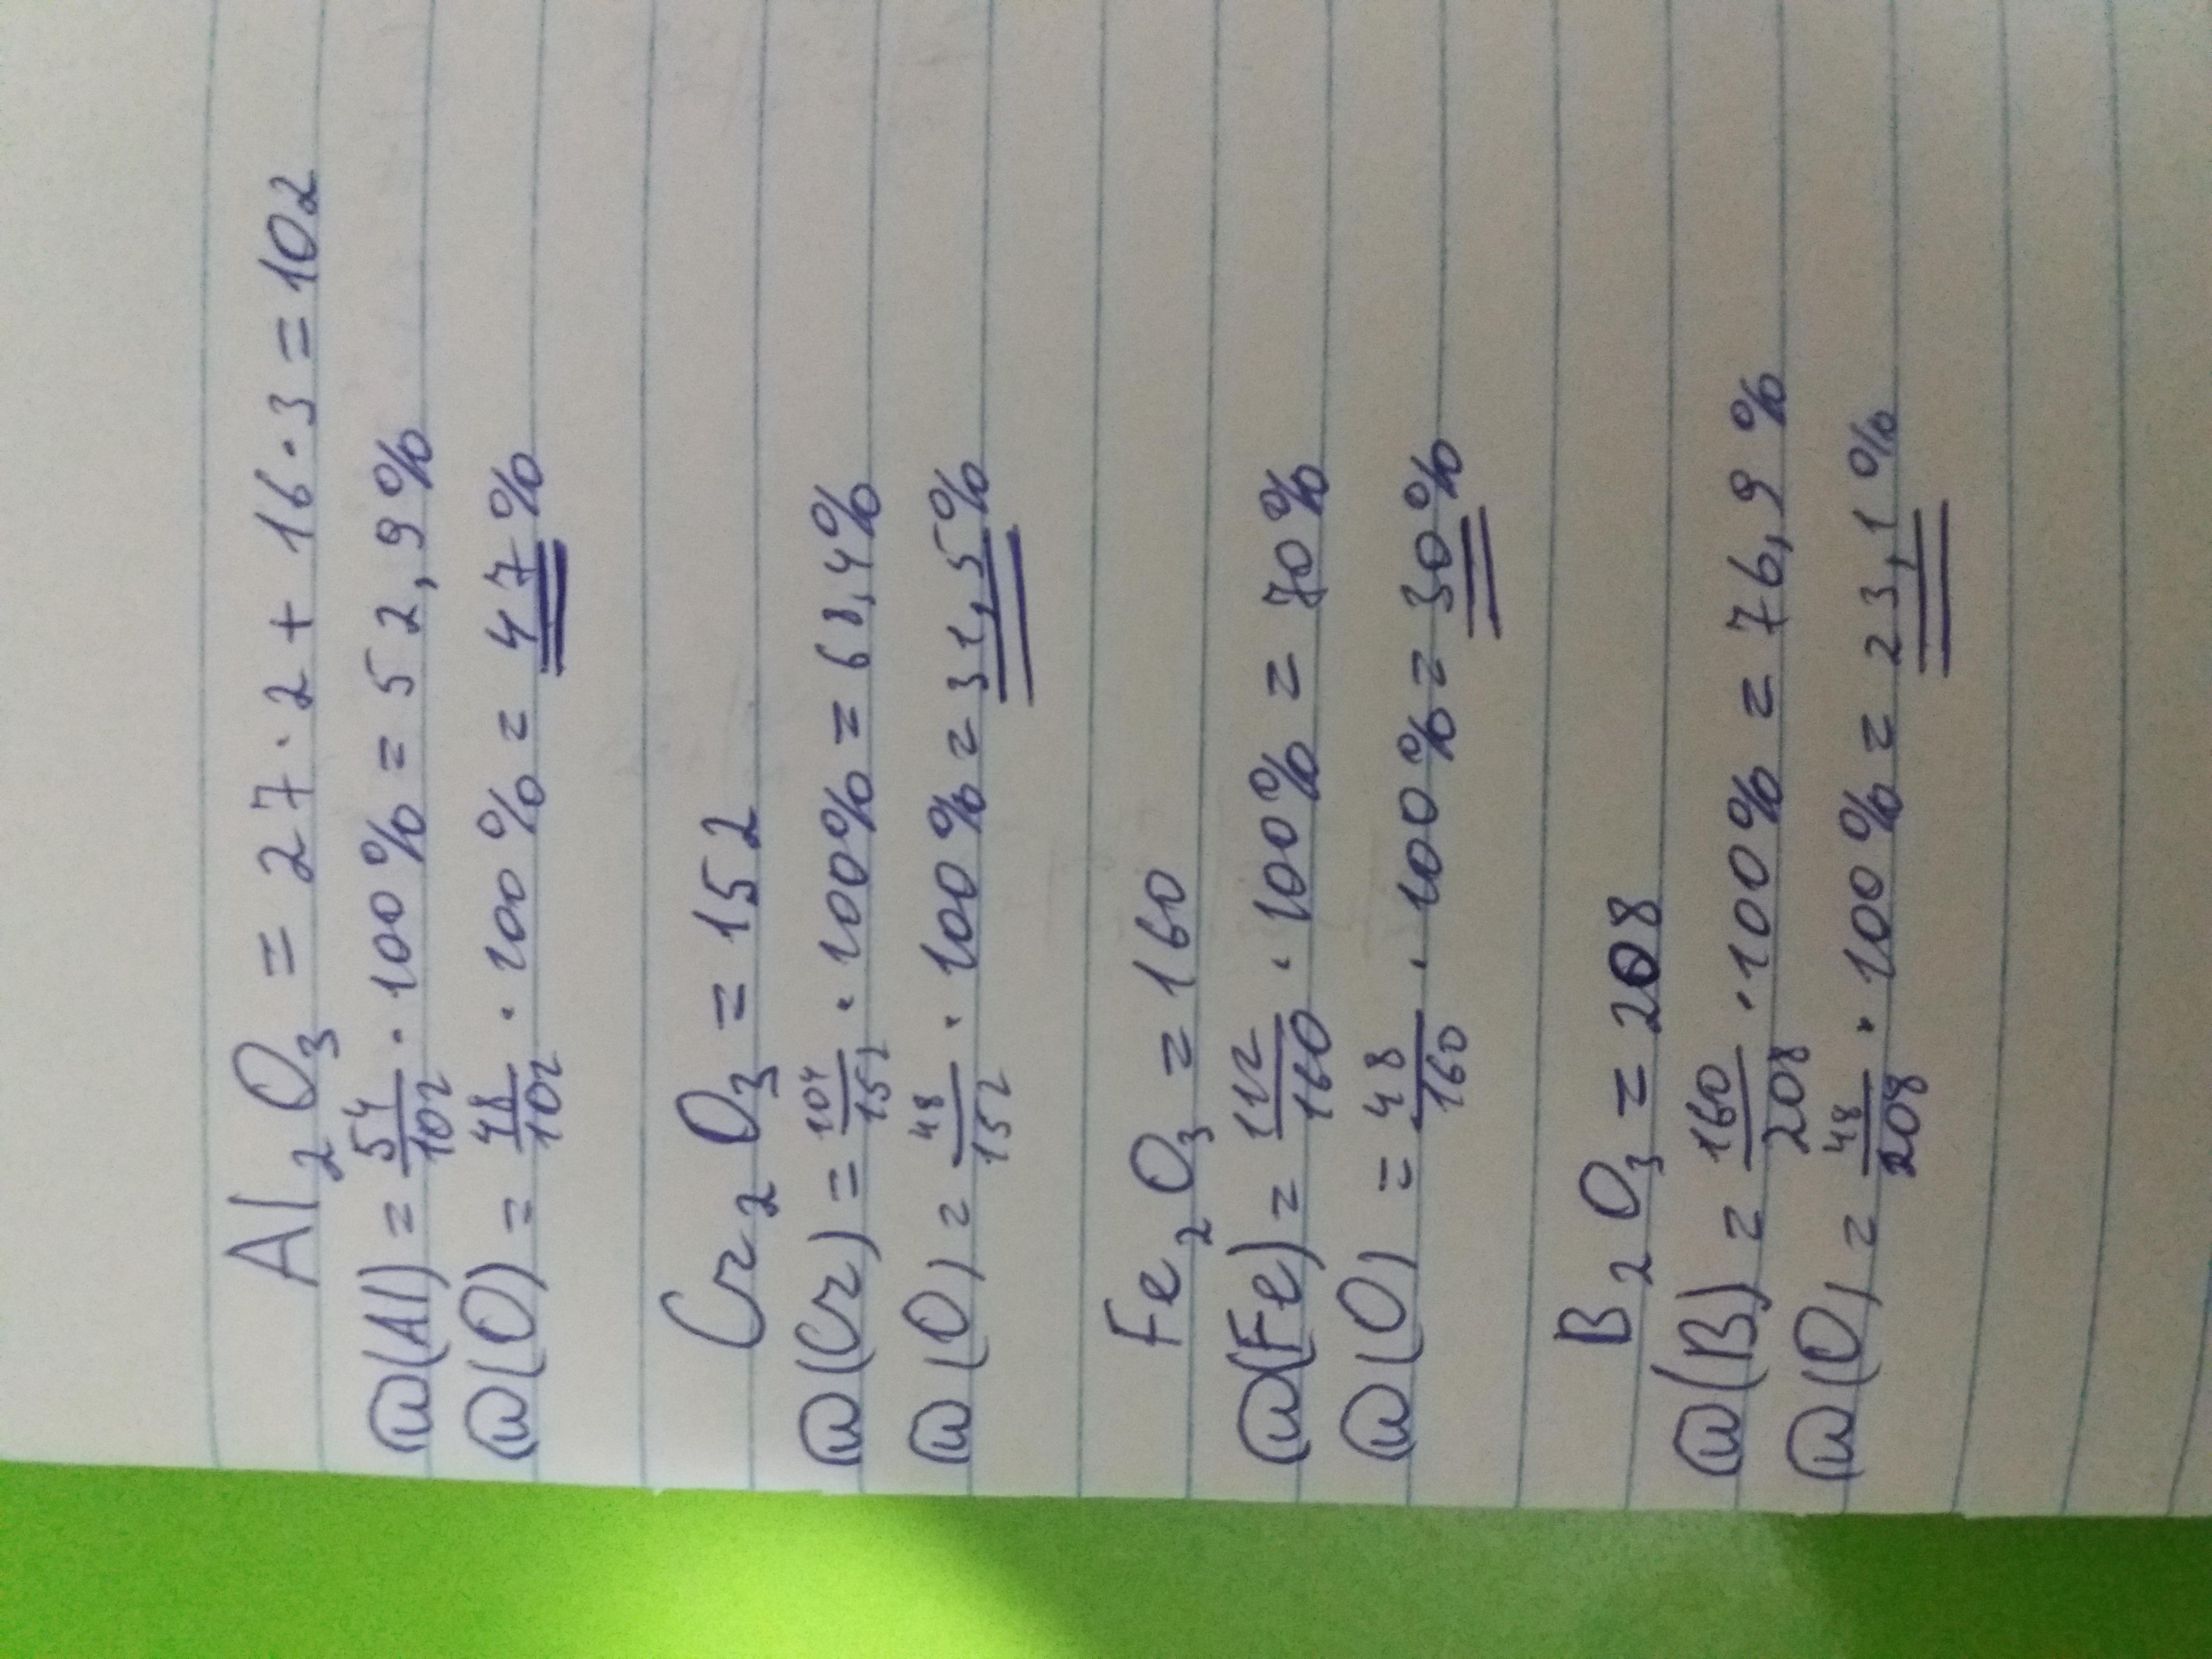 Al₂O₃ = 27·2 + 16·3 = 102
ω(Al) = 54/102 · 100% = 52,9%
ω(O) = 48/102 · 100% = 47%
Cr₂O₃ = 152
ω(Cr) = 104/152 · 100% = 68,4%
ω(O) = 48/152 · 100% = 31,5%
Fe₂O₃ = 160
ω(Fe) = 112/160 · 100% = 70%
ω(O) = 48/160 · 100% = 30%
B₂O₃ = 208
ω(B) = 160/208 · 100% = 76,9%
ω(O) = 48/208 · 100% = 23,1%